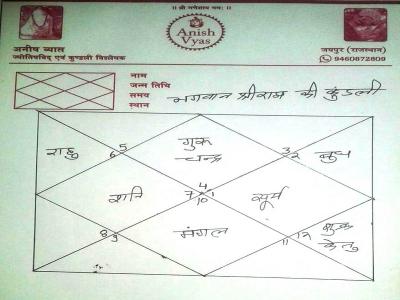 ॥ श्री गणेशाय नमः ॥
Anish
Vyas
अनीष व्यास
ज्योतिषविद् एवं कुण्डली विश्लेषक
जयपुर (राजस्थान)
9460872809
नाम
जन्म तिथि
समय
स्थान
भगवान श्रीराम की कुंडली
राहु
6 5
गुरू
चन्द्र
3 2
बुध
शनि
4
7 1
10
सूर्य
8 9
मंगल
11 12
शुक्र
केतु